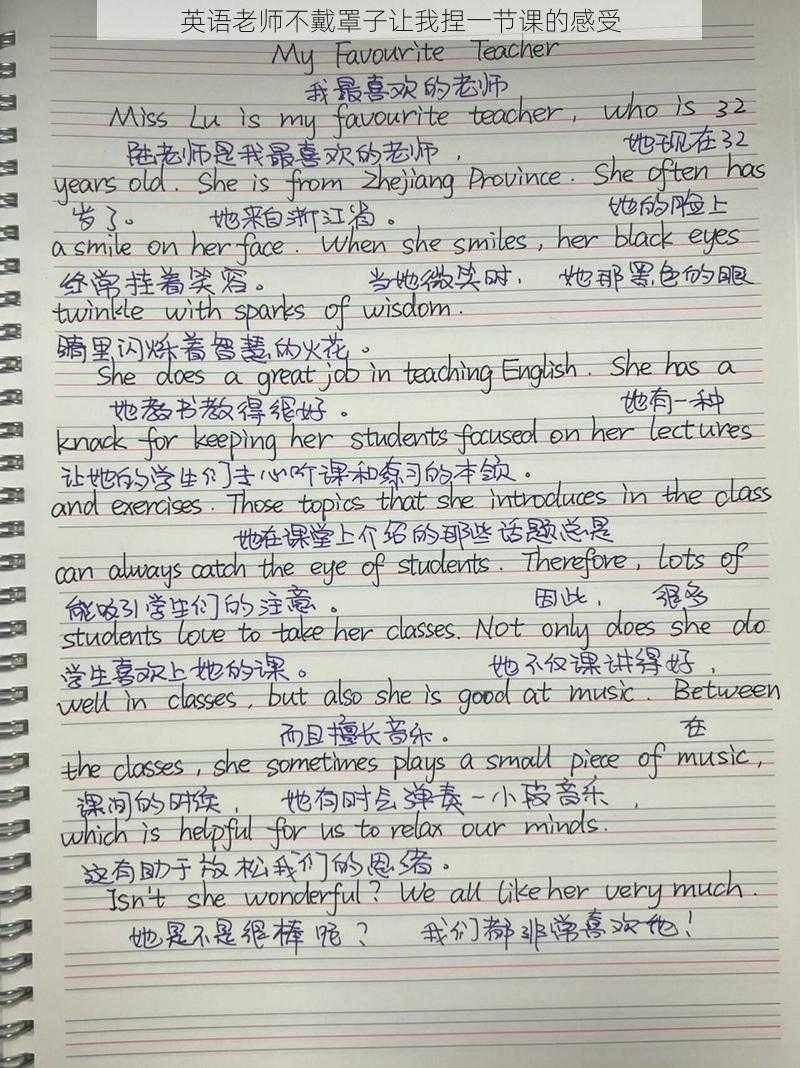 英语老师不戴罩子让我捏一节课的感受
My Favourite Teacher
我最喜欢的老师
Miss Lu is my favourite teacher, who is 32
陆老师是我最喜欢的老师， 她现在32
years old. She is from Zhejiang Province. She often has
岁了。 她来自浙江省。 她的脸上
a smile on her face. When she smiles, her black eyes
经常挂着笑容。 当她微笑时， 她那黑色的眼
twinkle with sparks of wisdom.
睛里闪烁着智慧的火花。
She does a great job in teaching English. She has a
她教书教得很好。 她有一种
knack for keeping her students focused on her lectures
让她的学生们专心听课和练习的本领。
and exercises. Those topics that she introduces in the class
她在课堂上介绍的那些话题总是
can always catch the eye of students. Therefore, lots of
能吸引学生们的注意。 因此， 很多
students love to take her classes. Not only does she do
学生喜欢上她的课。 她不仅课讲得好，
well in classes, but also she is good at music. Between
而且擅长音乐。 在
the classes, she sometimes plays a small piece of music,
课间的时候， 她有时会弹奏一小段音乐，
which is helpful for us to relax our minds.
这有助于放松我们的思绪。
Isn't she wonderful? We all like her very much.
她是不是很棒呢？ 我们都非常喜欢她！